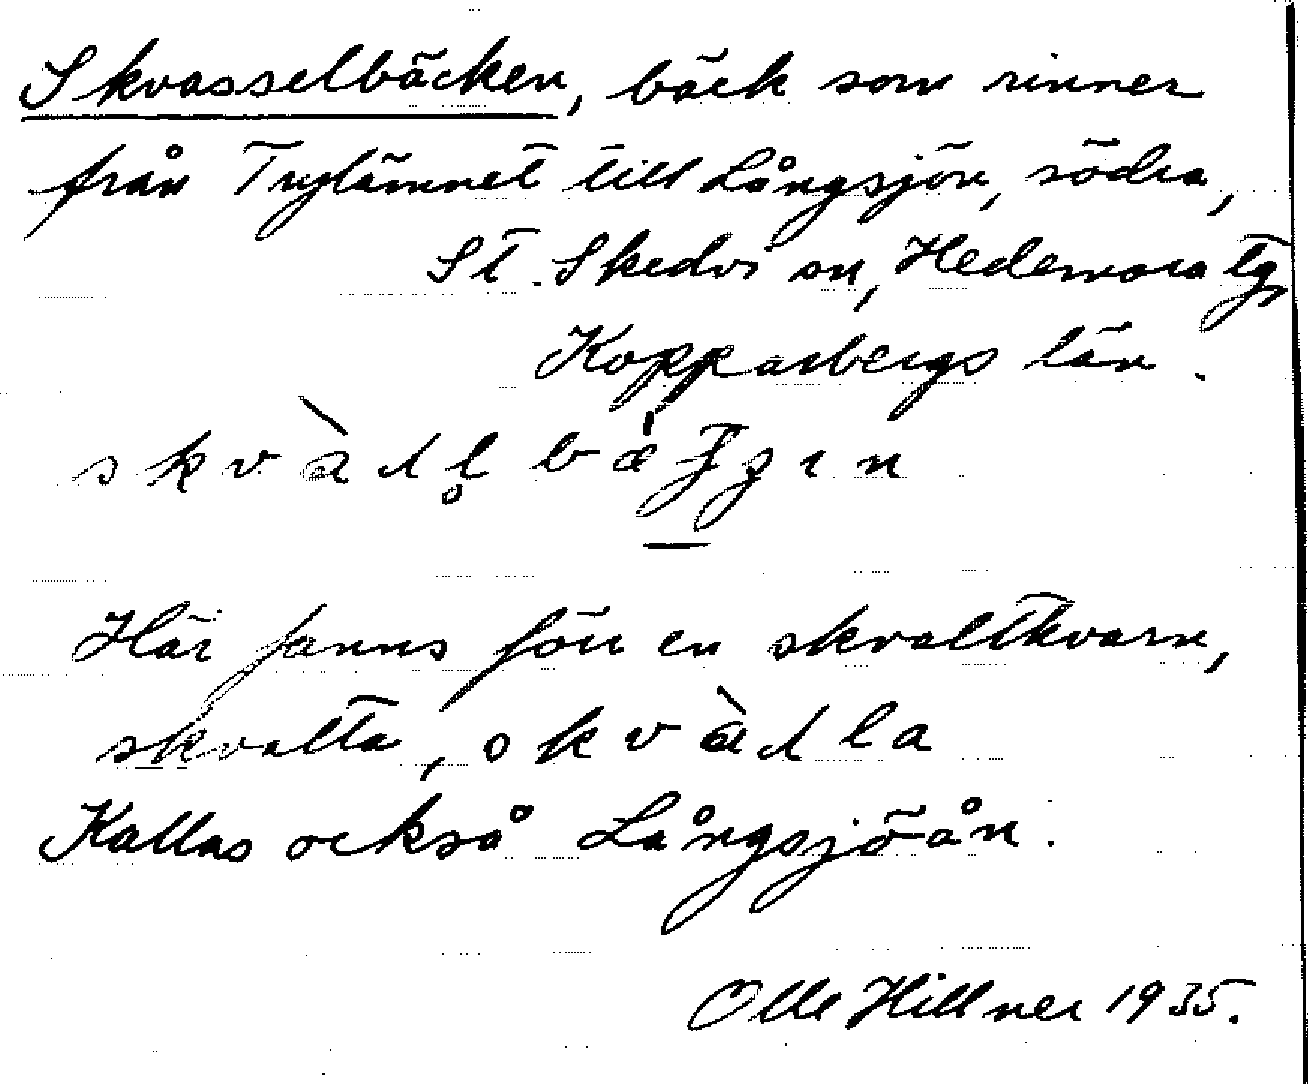 Skvasselbäcken, bäck som rinner
från Trytämnet till Långsjön, södra,
St. Skedvi sn, Hedemora tg,
Kopparbergs län.
Här fanns förr en skvaltkvarn,
skvalta,
Kallas också Långsjöån.
Olle Hillner 1935.